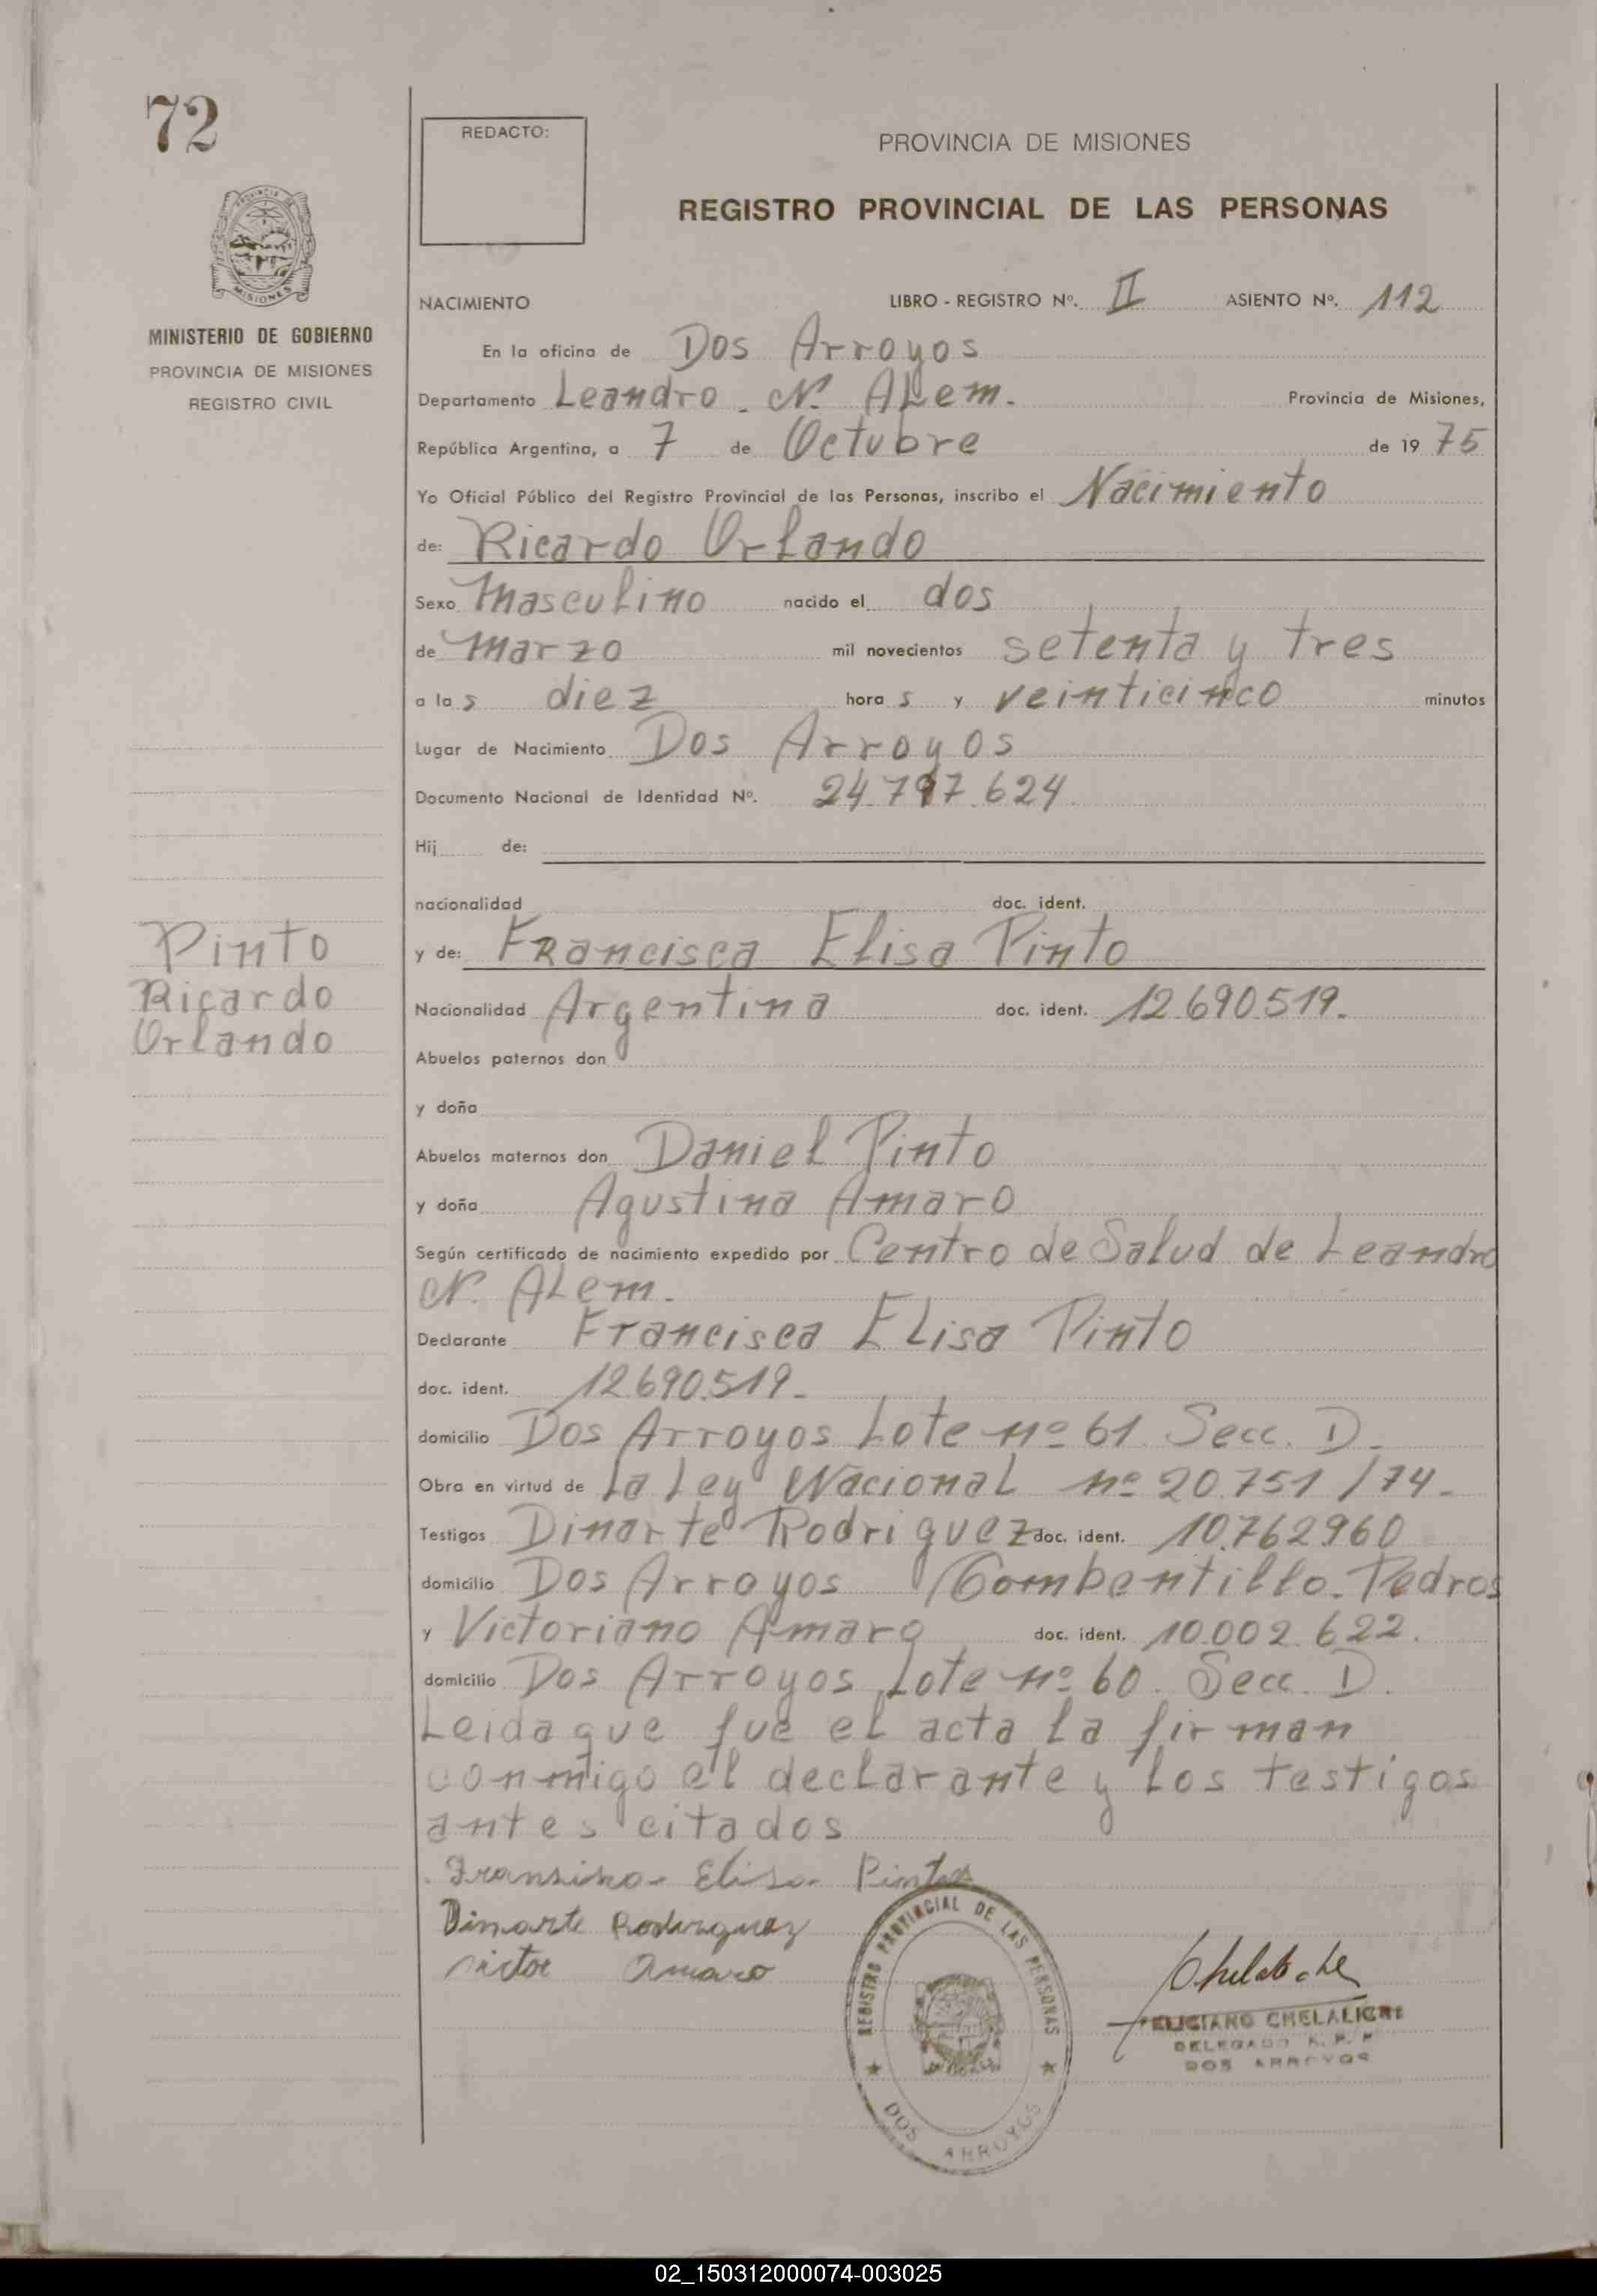 72
PROVINCIA DE MISIONES
MINISTERIO DE GOBIERNO
PROVINCIA DE MISIONES
REGISTRO CIVIL
Pinto
Ricardo
Orlando
REDACTO:
PROVINCIA DE MISIONES
REGISTRO PROVINCIAL DE LAS PERSONAS
NACIMIENTO LIBRO - REGISTRO Nº. II ASIENTO Nº. 112
En la oficina de Dos Arroyos
Departamento Leandro. N. ALem. Provincia de Misiones,
República Argentina, a 7 de Octubre de 19 75
Yo Oficial Público del Registro Provincial de las Personas, inscribo el Nacimiento
de: Ricardo Orlando
Sexo Masculino nacido el dos
de Marzo mil novecientos setenta y tres
a la s diez hora s y veinticinco minutos
Lugar de Nacimiento Dos Arroyos
Documento Nacional de Identidad Nº. 24.797.624.
Hij de:
nacionalidad doc. ident.
y de: Francisca Elisa Pinto
Nacionalidad Argentina doc. ident. 12.690.519.
Abuelos paternos don
y doña
Abuelos maternos don Daniel Pinto
y doña Agustina Amaro
Según certificado de nacimiento expedido por Centro de Salud de Leandro
N. ALem.
Declarante Francisca Elisa Pinto
doc. ident. 12.690.519.
domicilio Dos Arroyos Lote nº 61 Secc. D.
Obra en virtud de La Ley Nacional nº 20.751/74.
Testigos Dinarte Rodriguez doc. ident. 10.762960
domicilio Dos Arroyos
y Victoriano Amaro doc. ident. 10.002.622.
domicilio Dos Arroyos Lote nº 60. Secc. D.
Leida que fue el acta la firman
conmigo el declarante y los testigos
antes citados
Elisa Pinto
Dinarte Rodriguez
Victor Amaro
REGISTRO PROVINCIAL DE LAS PERSONAS
DOS ARROYOS
FELICIANO
DELEGADO R. P. P.
DOS ARROYOS
02_150312000074-003025